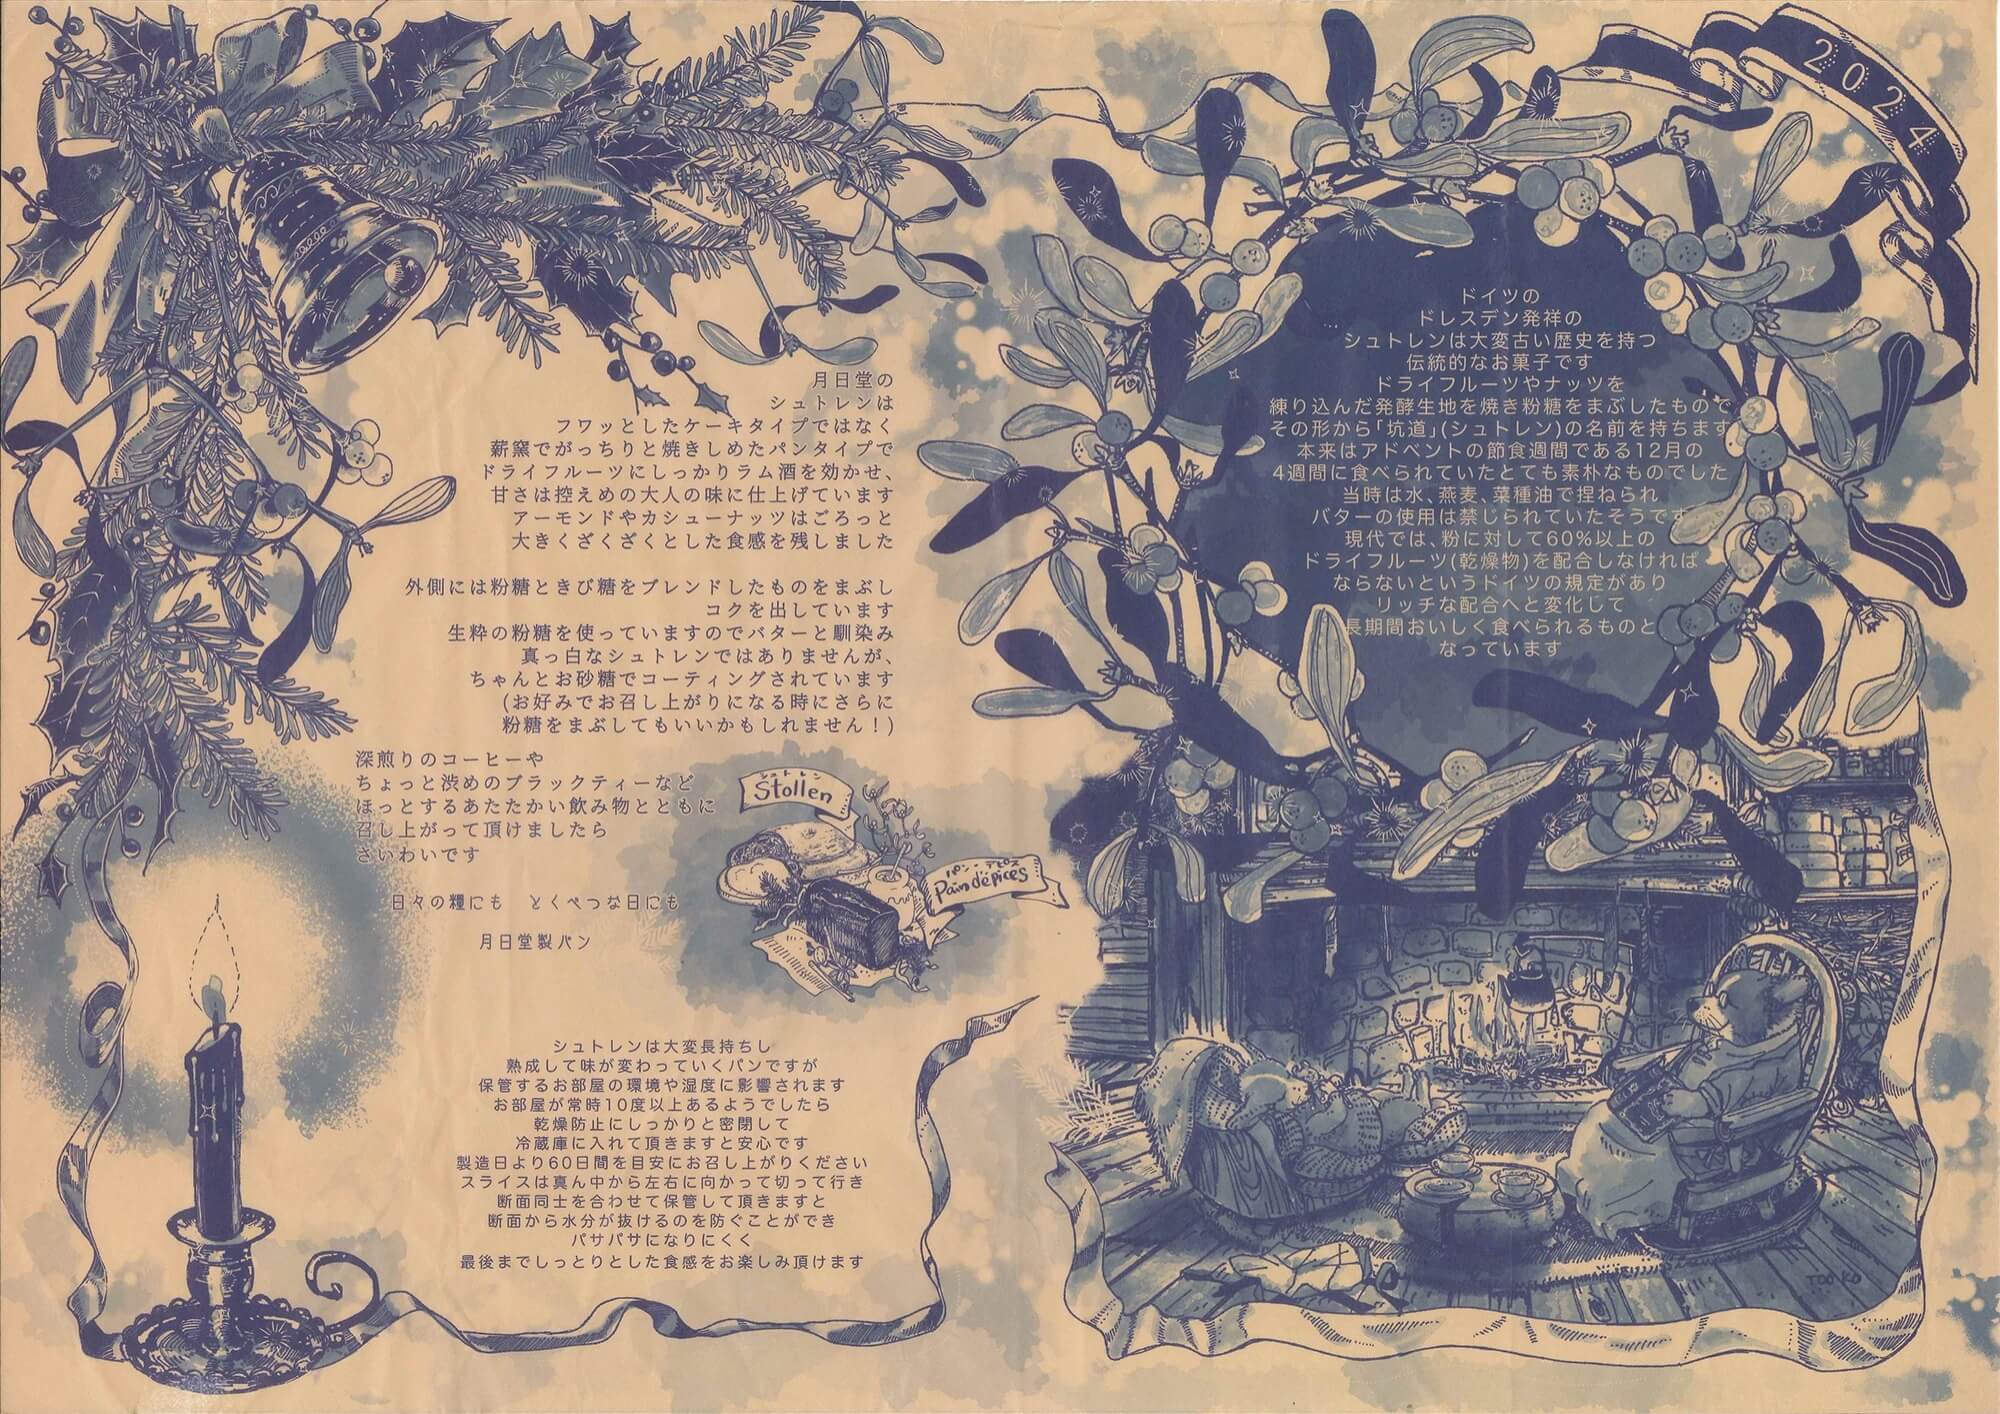 2024
ドイツの
ドレスデン発祥の
シュトレンは大変古い歴史を持つ
伝統的なお菓子です
ドライフルーツやナッツを
練り込んだ発酵生地を焼き粉糖をまぶしたもので
その形から「坑道」(シュトレン)の名前を持ちます
本来はアドベントの節食週間である12月の
4週間に食べられていたとても素朴なものでした
当時は水、燕麦、菜種油で捏ねられ
バターの使用は禁じられていたそうです
現代では、粉に対して60%以上の
ドライフルーツ(乾燥物)を配合しなければ
ならないというドイツの規定があり
リッチな配合へと変化して
長期間おいしく食べられるものと
なっています
月日堂の
シュトレンは
フワッとしたケーキタイプではなく
薪窯でがっちりと焼きしめたパンタイプで
ドライフルーツにしっかりラム酒を効かせ、
甘さは控えめの大人の味に仕上げています
アーモンドやカシューナッツはごろっと
大きくざくざくとした食感を残しました
外側には粉糖ときび糖をブレンドしたものをまぶし
コクを出しています
生粋の粉糖を使っていますのでバターと馴染み
真っ白なシュトレンではありませんが、
ちゃんとお砂糖でコーティングされています
(お好みでお召し上がりになる時にさらに
粉糖をまぶしてもいいかもしれません!)
深煎りのコーヒーや
ちょっと渋めのブラックティーなど
ほっとするあたたかい飲み物とともに
召し上がって頂けましたら
さいわいです
日々の糧にも とくべつな日にも
月日堂製パン
シュトレン
Stollen
パン・デピス
Pain d'epices
シュトレンは大変長持ちし
熟成して味が変わっていくパンですが
保管するお部屋の環境や湿度に影響されます
お部屋が常時10度以上あるようでしたら
乾燥防止にしっかりと密閉して
冷蔵庫に入れて頂きますと安心です
製造日より60日間を目安にお召し上がりください
スライスは真ん中から左右に向かって切って行き
断面同士を合わせて保管して頂きますと
断面から水分が抜けるのを防ぐことができ
パサパサになりにくく
最後までしっとりとした食感をお楽しみ頂けます
TOOKO